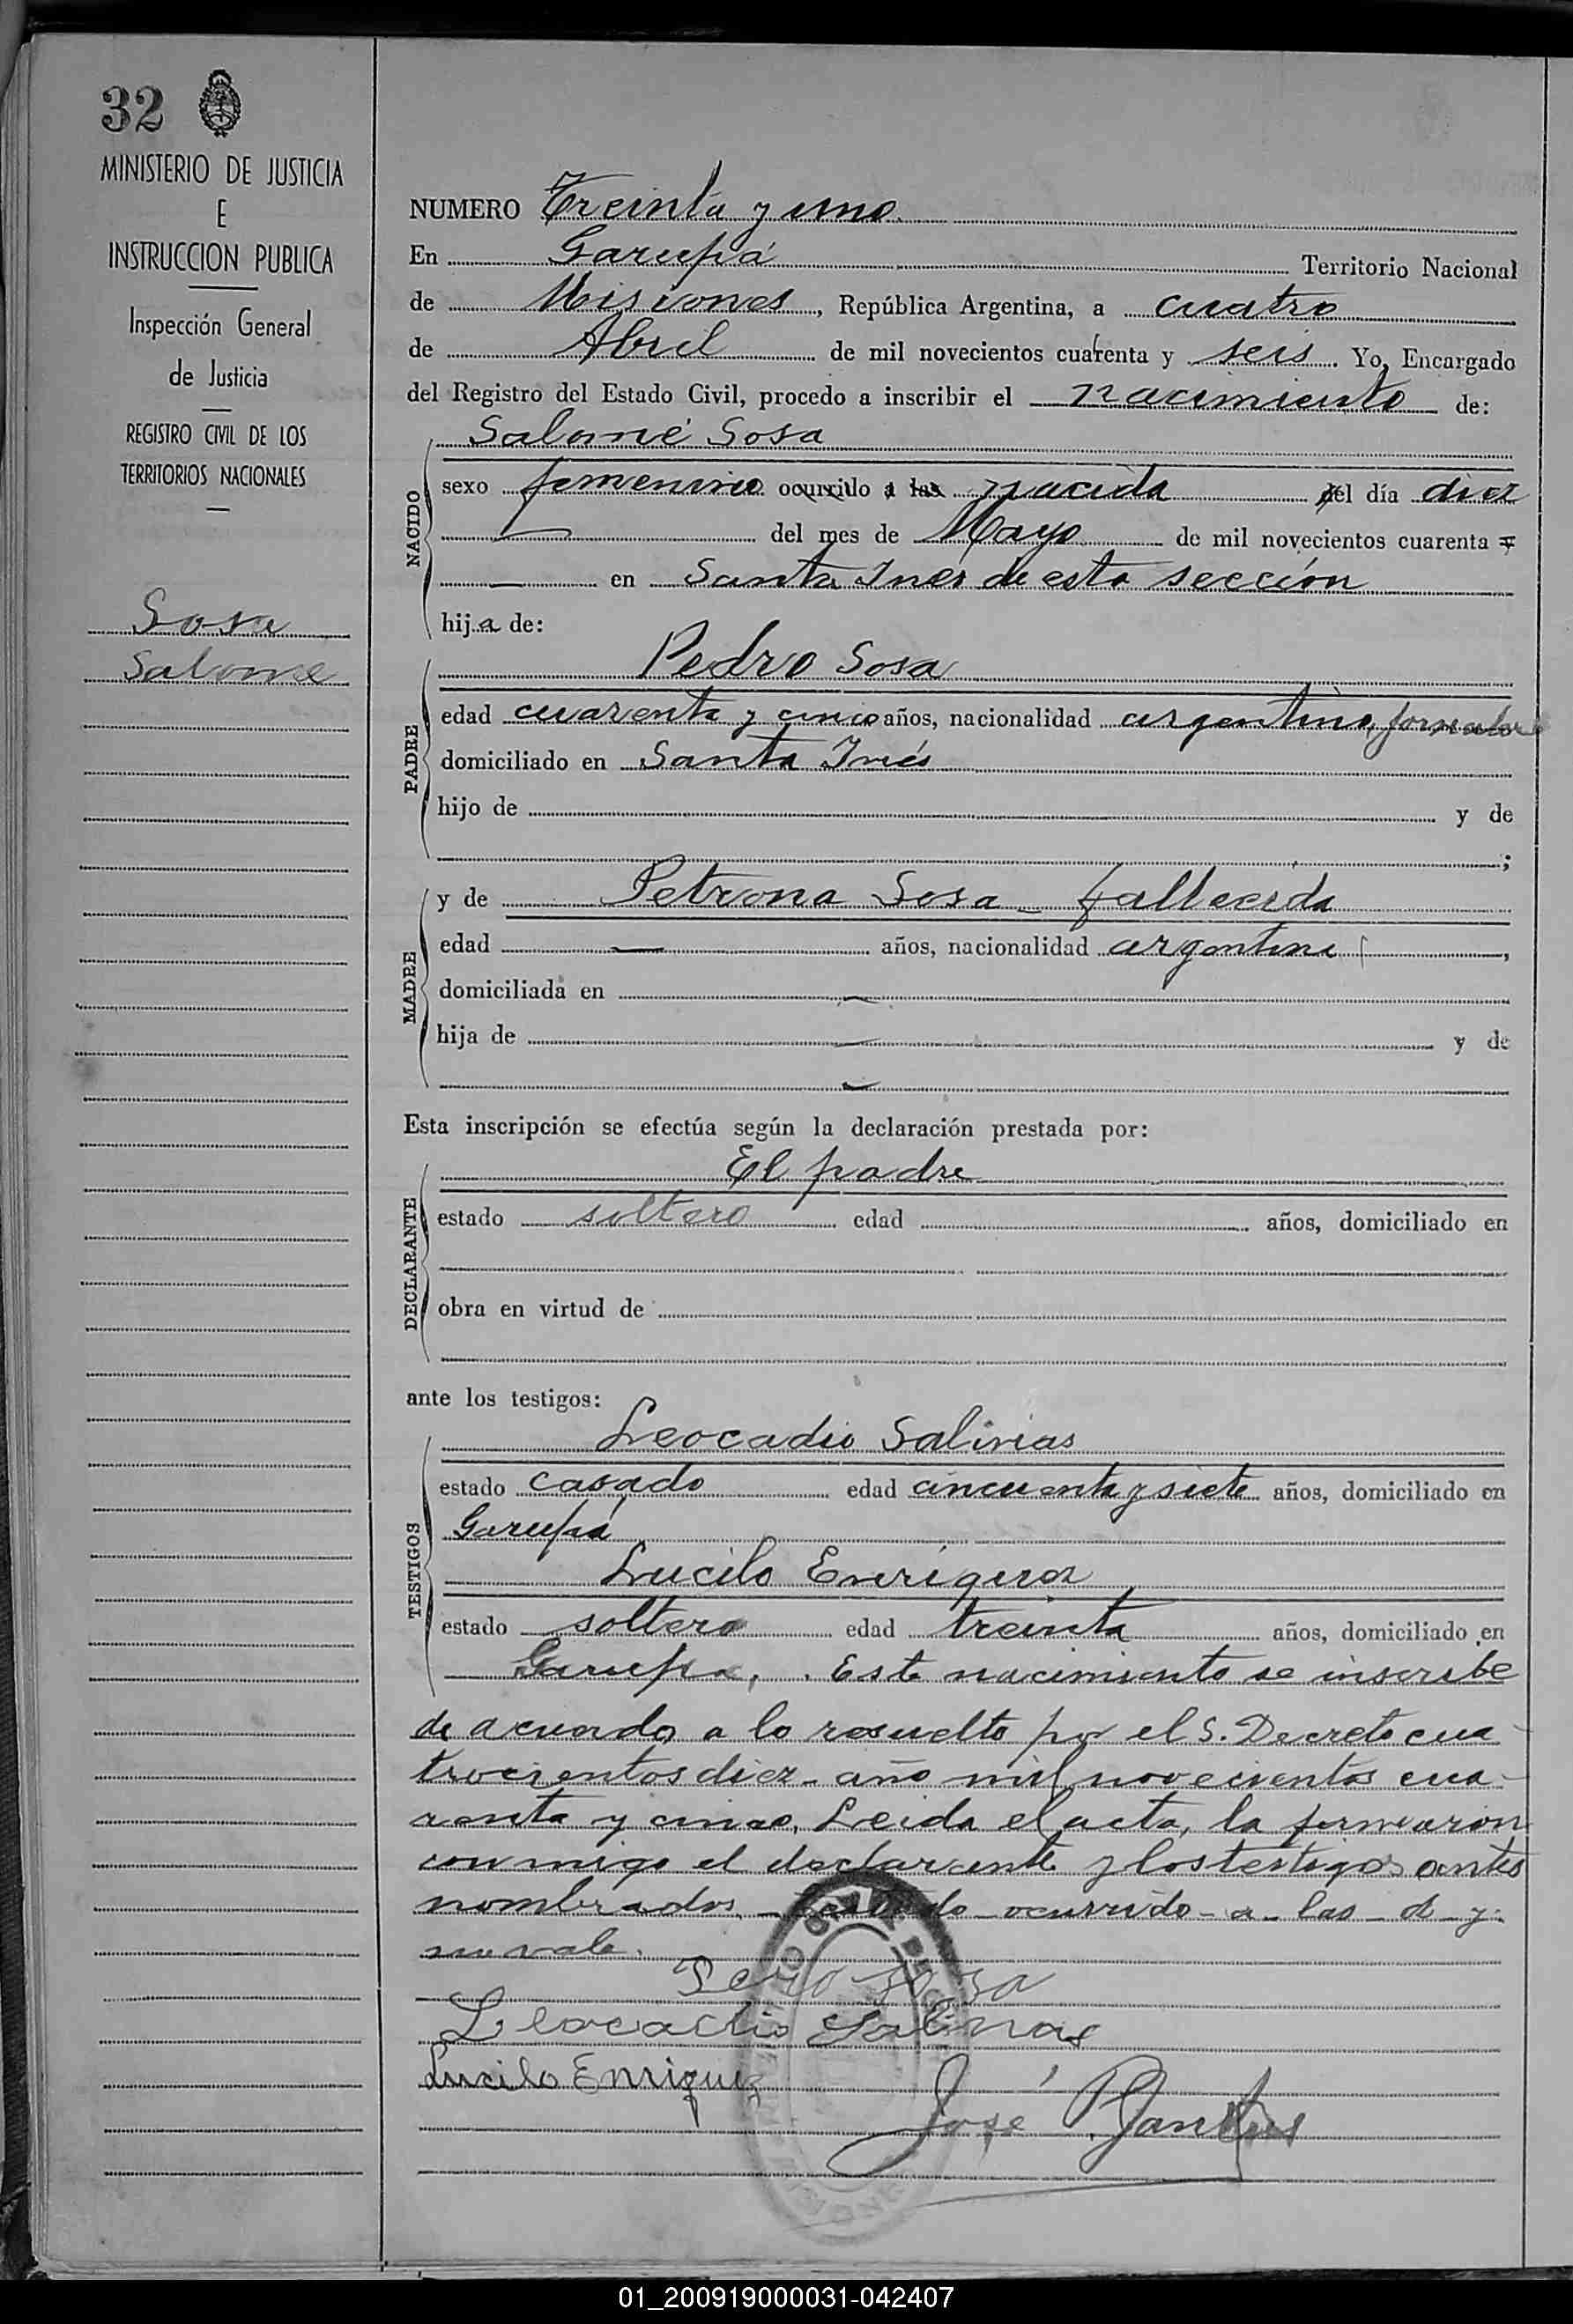 32
MINISTERIO DE JUSTICIA
E
INSTRUCCION PUBLICA
Inspección General
de Justicia
REGISTRO CIVIL DE LOS
TERRITORIOS NACIONALES
Sosa
Salome
NUMERO Treinta y uno
En Garupá Territorio Nacional
de Misiones, República Argentina, a cuatro
de Abril de mil novecientos cuarenta y seis. Yo, Encargado
del Registro del Estado Civil, procedo a inscribir el nacimiento de:
NACIDO
Salomé Sosa
sexo femenino ocurrido a las nacida del día diez
del mes de Mayo de mil novecientos cuarenta y
— en Santa Inés de esta sección
hija de:
PADRE
Pedro Sosa
edad cuarenta y cinco años, nacionalidad argentino, jornalero
domiciliado en Santa Inés
hijo de y de
;
MADRE
y de Petrona Sosa - fallecida
edad — años, nacionalidad argentina,
domiciliada en —
hija de — y de
—
Esta inscripción se efectúa según la declaración prestada por:
DECLARANTE
El padre
estado soltero edad años, domiciliado en
obra en virtud de
ante los testigos:
TESTIGOS
Leocadio Salinas
estado casado edad cincuenta y siete años, domiciliado en
Garupá
Lucilo Enriquez
estado soltero edad treinta años, domiciliado en
Garupa. Este nacimiento se inscribe
de acuerdo a lo resuelto por el S. Decreto cua-
trocientos diez - año mil novecientos cua-
renta y cinco. Leida el acta, la firmaron
conmigo el declarante y los testigos antes
nombrados. - Testado - ocurrido - a - las - d - y -
no vale.
Pero sosa
Leocadio Salinas
Lucilo Enriquez
José
01_200919000031-042407